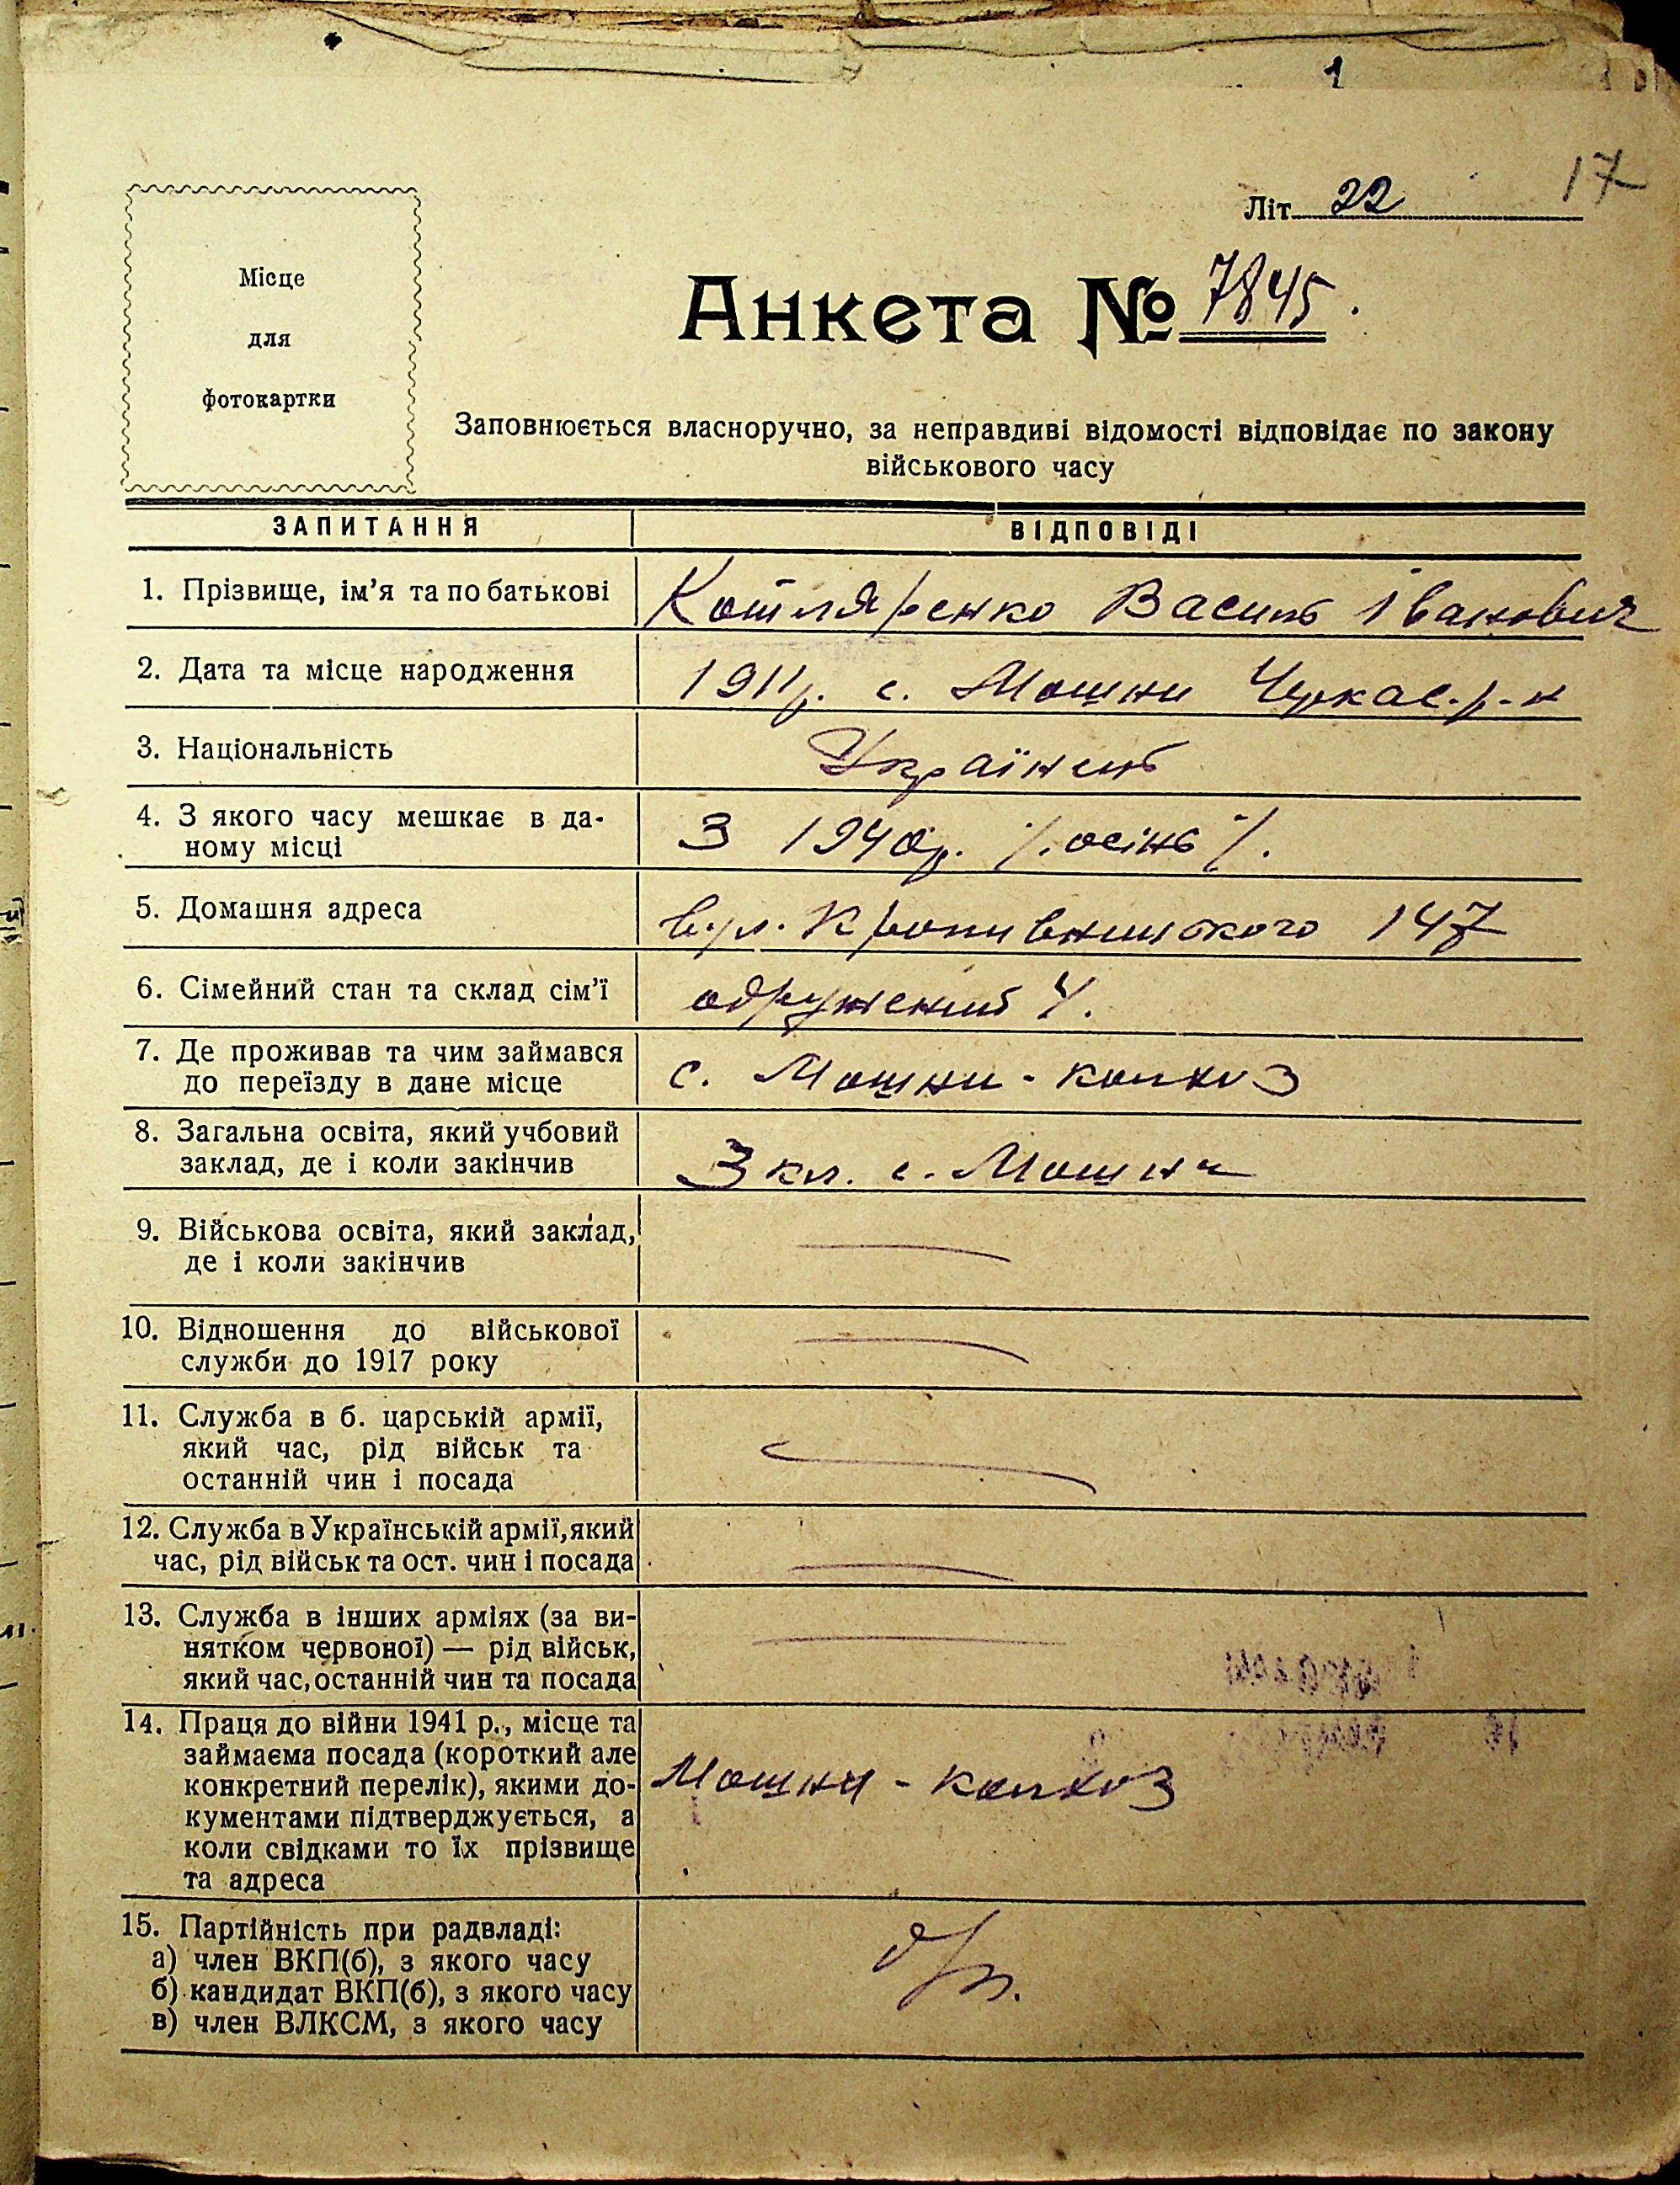 1
17
Літ. 22
Місце
для
фотокартки
Анкета № 7845.
Заповнюється власноручно, за неправдиві відомості відповідає по закону
військового часу
ЗАПИТАННЯ
ВІДПОВІДІ
1. Прізвище, ім'я та по батькові
Котляренко Василь Іванович
2. Дата та місце народження
1911р. с. Мошни Черкас. р-н
3. Національність
Українець
4. З якого часу мешкає в да-
ному місці
З 1940р. /. осінь /.
5. Домашня адреса
вул. Кропивницького 147
6. Сімейний стан та склад сім'ї
одружений 4.
7. Де проживав та чим займався
до переїзду в дане місце
с. Мошни - колхоз
8. Загальна освіта, який учбовий
заклад, де і коли закінчив
3 кл. с. Мошни
9. Військова освіта, який заклад,
де і коли закінчив
10. Відношення до військової
служби до 1917 року
11. Служба в б. царській армії,
який час, рід військ та
останній чин і посада
12. Служба в Українській армії, який
час, рід військ та ост. чин і посада
13. Служба в інших арміях (за ви-
нятком червоної) — рід військ,
який час, останній чин та посада
14. Праця до війни 1941 р., місце та
займаєма посада (короткий але
конкретний перелік), якими до-
кументами підтверджується, а
коли свідками то їх прізвище
та адреса
Мошни - колхоз
15. Партійність при радвладі:
а) член ВКП(б), з якого часу
б) кандидат ВКП(б), з якого часу
в) член ВЛКСМ, з якого часу
б/п.